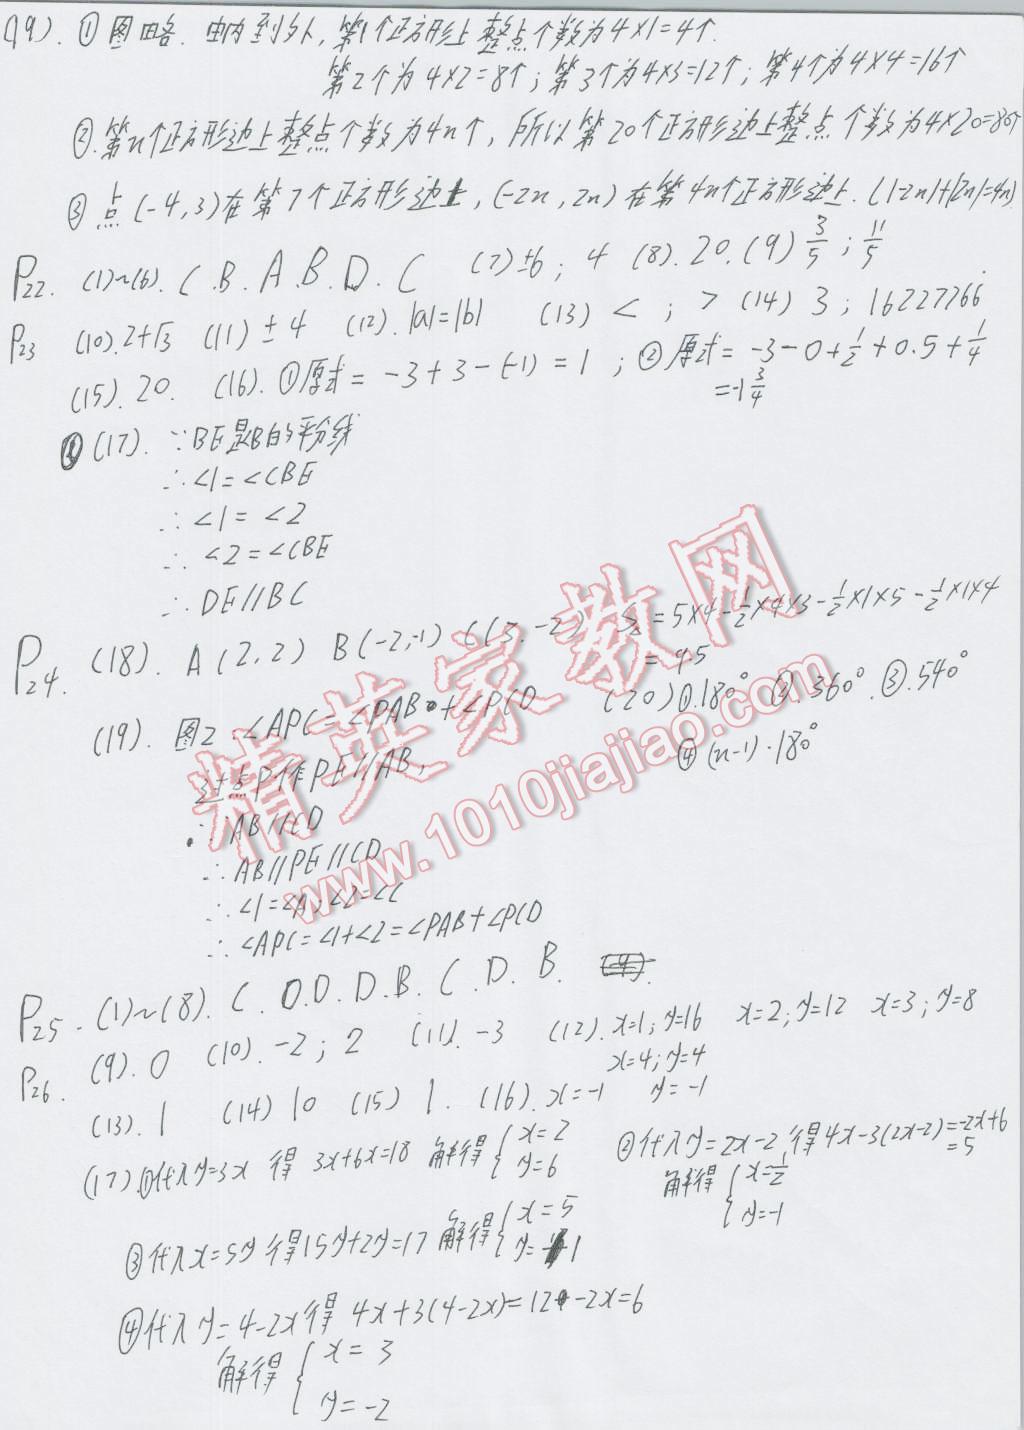 (19). ①图略. 由内到外, 第1个正方形上整点个数为4×1=4个.
第2个为4×2=8个; 第3个为4×3=12个; 第4个为4×4=16个
②.第n个正方形边上整点个数为4n个, 所以第20个正方形边上整点个数为4×20=80个
③ 点(-4,3)在第7个正方形边上, (-2n, 2n)在第4n个正方形边上. (|-2n|+|2n|=4n)
P22. (1)~(6). C.B.A.B.D.C (7)±6; 4 (8). 20. (9) 3/5; 11/5
P23 (10).2+√3 (11) ±4 (12). |a|=|b| (13) <; > (14) 3; 16227766
(15). 20. (16). ①原式= -3+3-(-1) = 1; ②原式= -3-0+1/2+0.5+1/4
=-1 3/4
(17). ∵BE是B的平分线
∴∠1=∠CBE
∴∠1=∠2
∴∠2=∠CBE
∴DE//BC
P24. (18). A(2,2) B(-2,-1) C(3,-2) S =5×4-1/2×4×3-1/2×1×5-1/2×1×4
= 9.5
(19). 图2 ∠APC=∠PAB+∠PCD (20)①.180° ②.360° ③.540°
④(n-1)·180°
过点P作PE//AB,
∵AB//CD
∴AB//PE//CD
∴∠1=∠A, ∠2=∠C
∴∠APC=∠1+∠2=∠PAB+∠PCD
P25. (1)~(8). C. D.D.D.B.C.D.B.
P26. (9). 0 (10). -2; 2 (11). -3 (12). x=1; y=16 x=2; y=12 x=3; y=8
x=4; y=4
(13). 1 (14) 10 (15) 1. (16). x=-1 y=-1
(17).①代入y=3x 得 3x+6x=18 解得{x=2 y=6 ②代入y=2x-2 得4x-3(2x-2)=-2x+6=5
解得{x=1/2 y=-1
③代入x=5y 得15y+2y=17 解得{x=5 y=1
④代入y=4-2x得 4x+3(4-2x)=12-2x=6
解得{x=3
y=-2
精英家教网
www.1010jiajiao.com